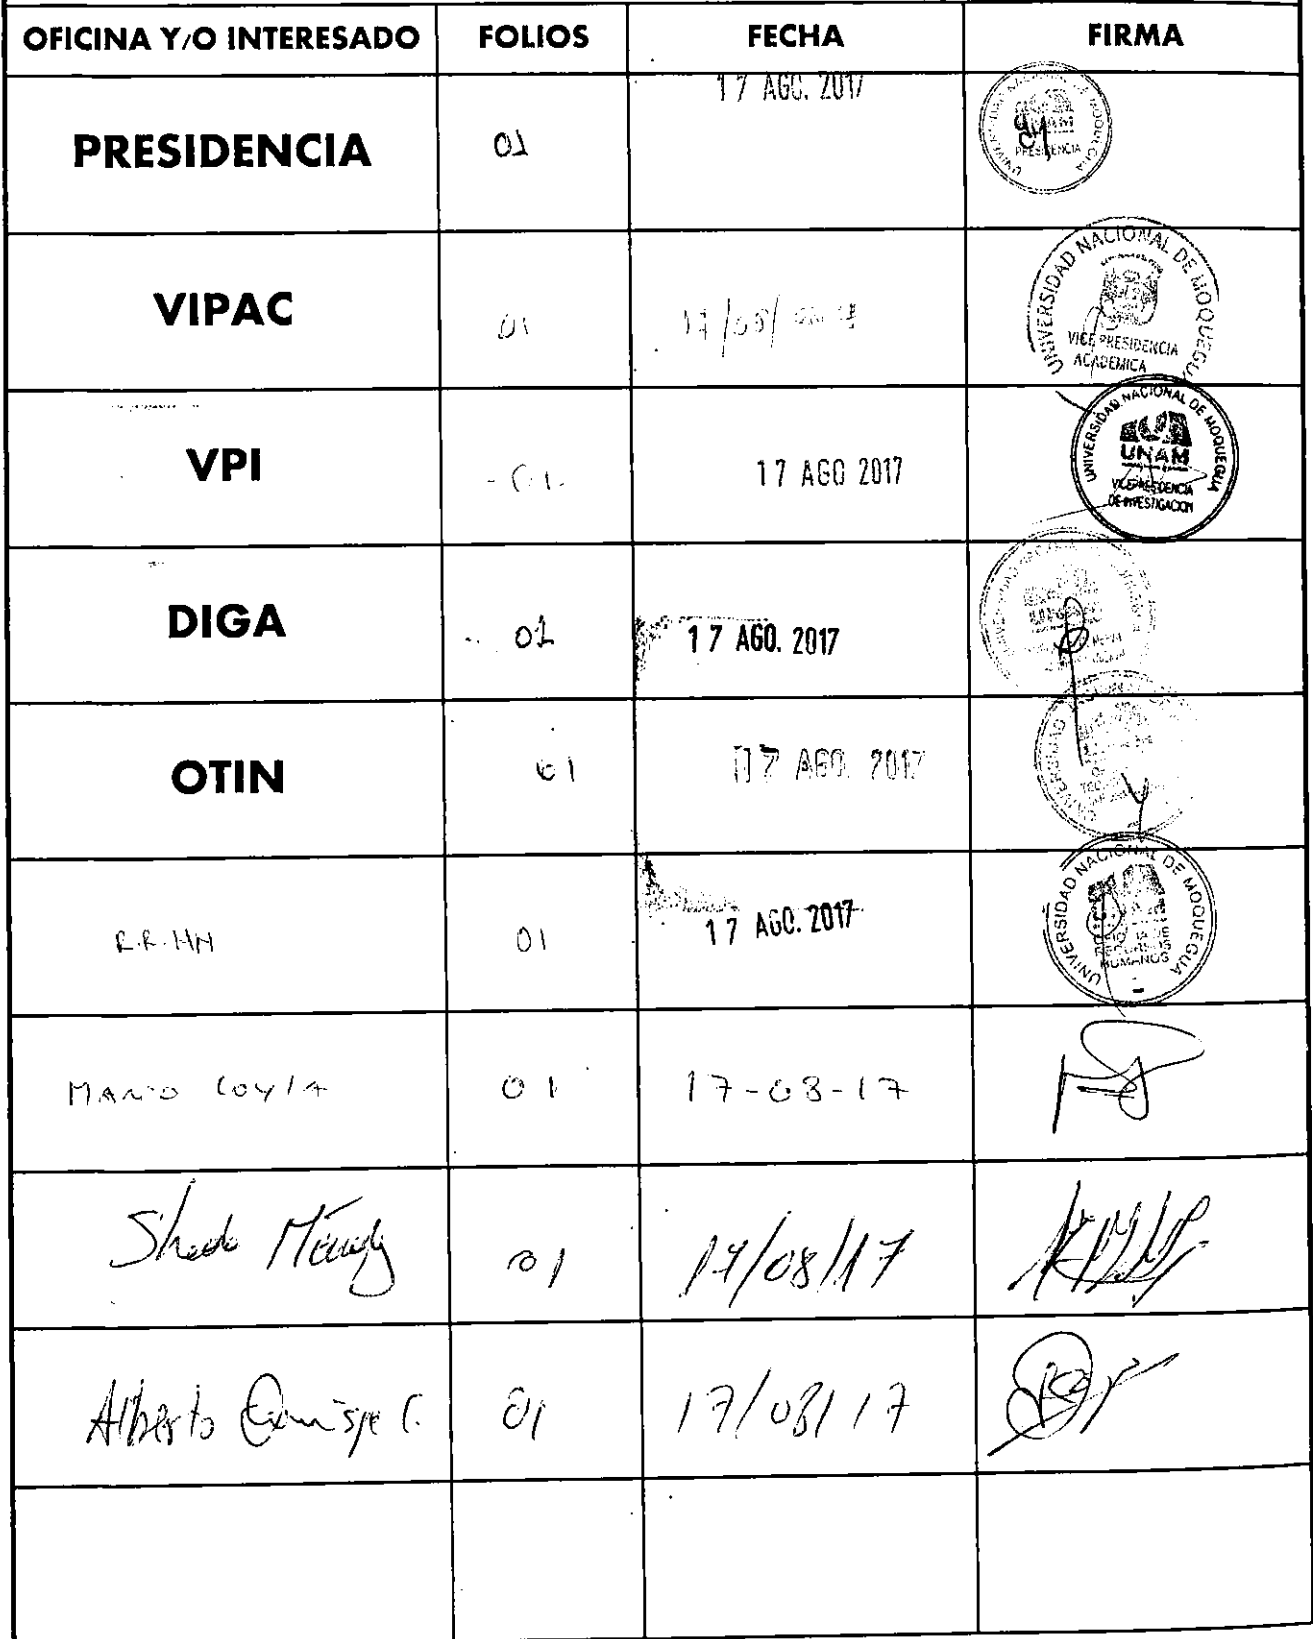 OFICINA Y/O INTERESADO FOLIOS FECHA FIRMA
PRESIDENCIA 01 17 AGO. 2017
UNAM
PRESIDENCIA
VIPAC 01 17/08/
UNIVERSIDAD NACIONAL DE MOQUEGUA
VICE PRESIDENCIA
ACADEMICA
VPI 17 AGO 2017
UNIVERSIDAD NACIONAL DE MOQUEGUA
UNAM
VICEPRESIDENCIA
DE INVESTIGACION
DIGA 01 17 AGO. 2017
OTIN 01 17 AGO. 2017
R.R.HH 01 17 AGO. 2017
UNIVERSIDAD NACIONAL DE MOQUEGUA
RECURSOS
HUMANOS
MARIO COYLA 01 17-08-17
01 17/08/17
Alberto Quispe C. 01 17/08/17